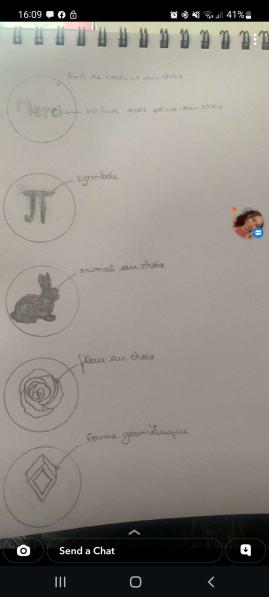 16:09
41%
fond de couleur au choix
Merci
écriture avec police au choix
symbole
π
animal au choix
fleur au choix
forme géométrique
Send a Chat